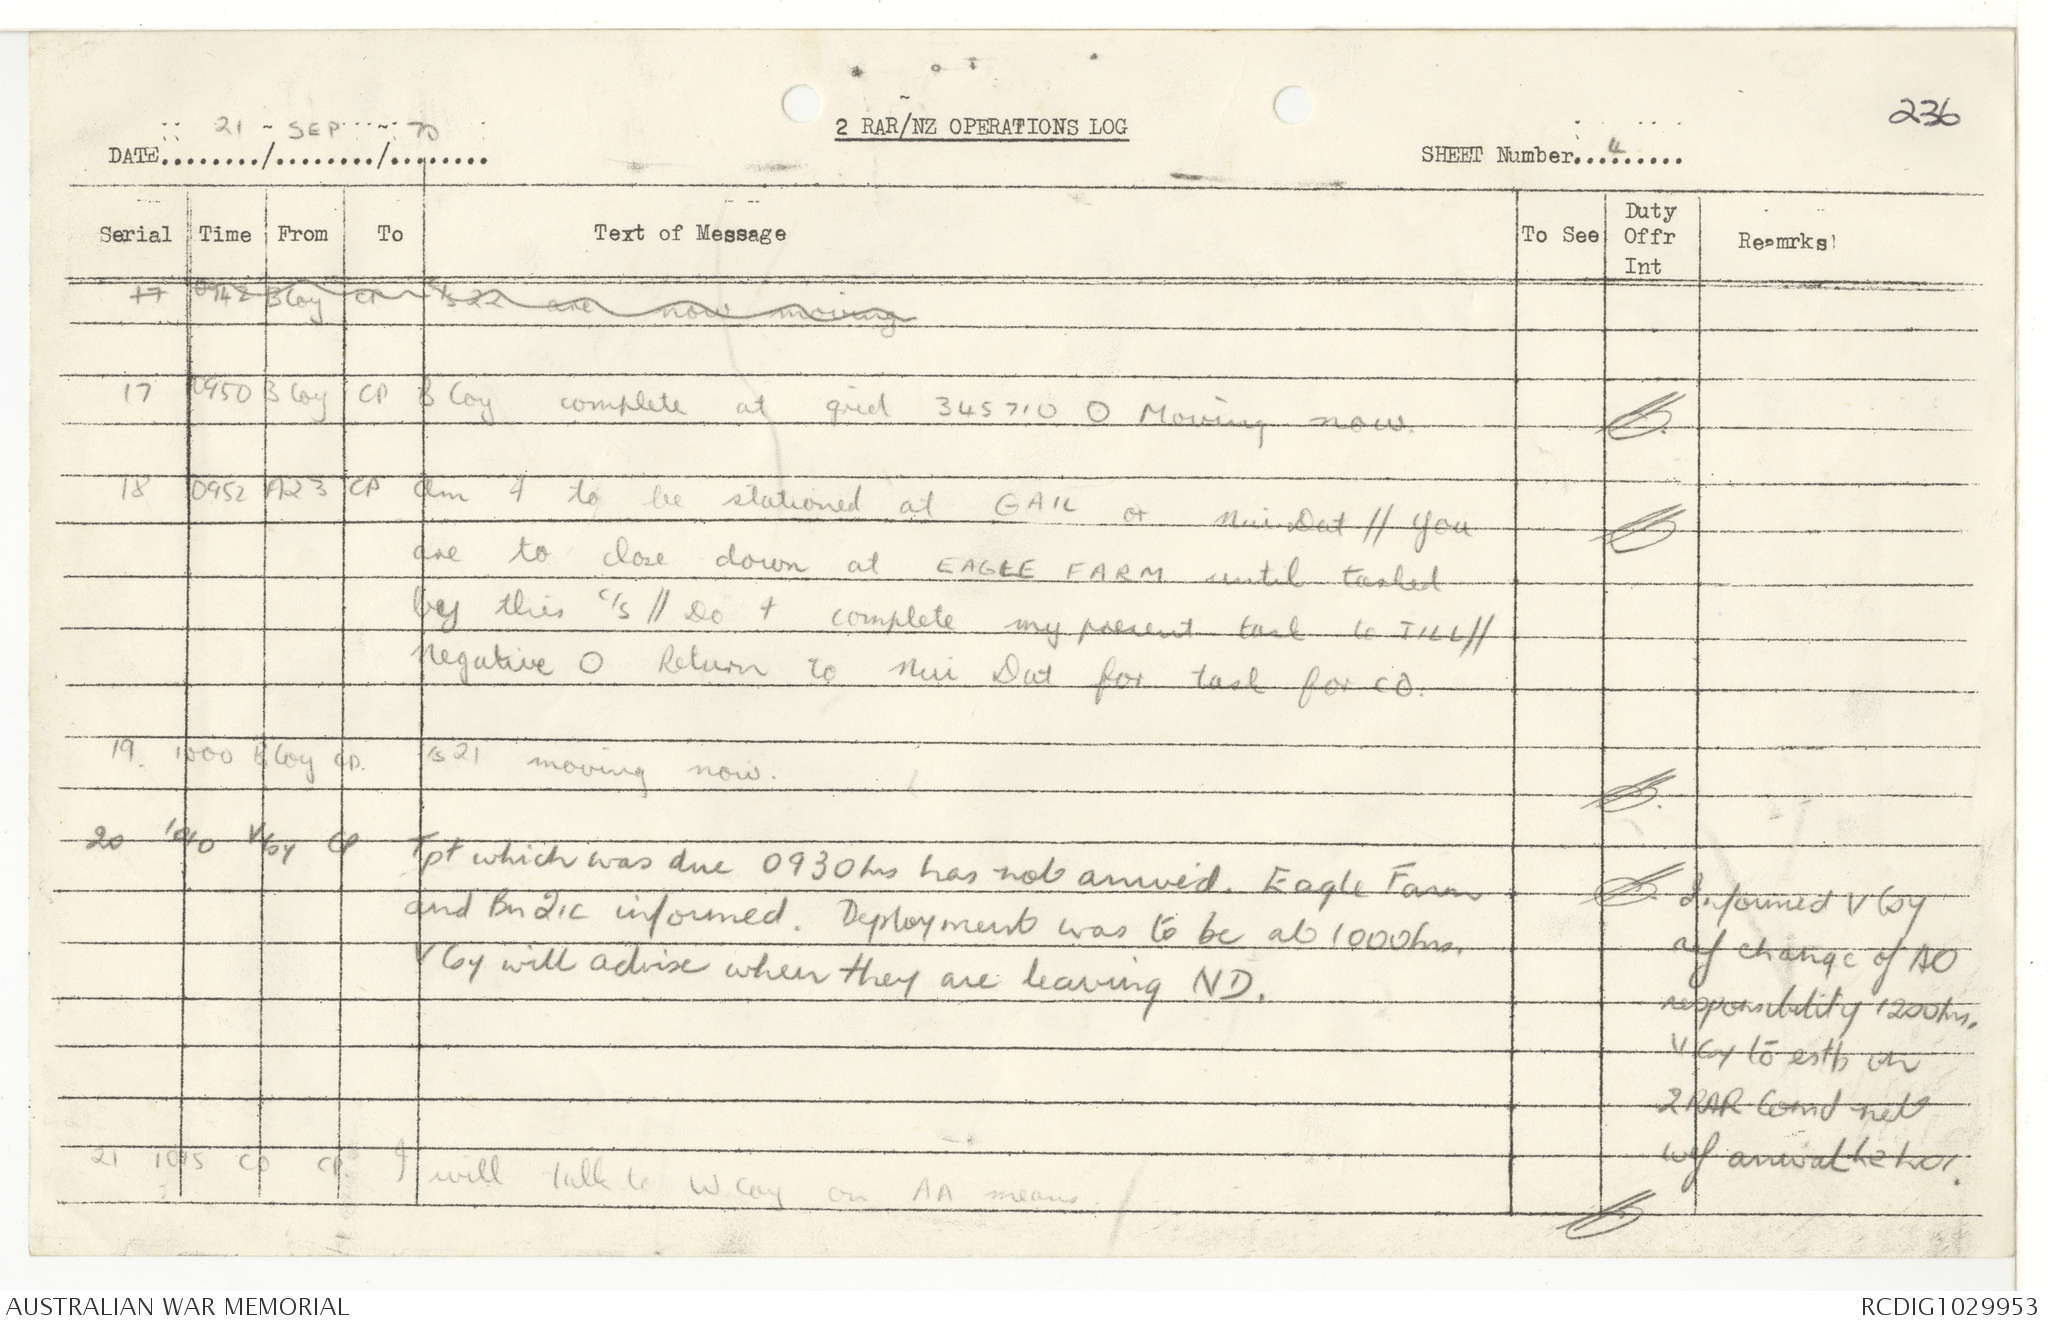 236
2 RAR/NZ OPERATIONS LOG
DATE 21 / SEP / 70
SHEET Number 4
Serial Time From To Text of Message To See Duty Offr Int Remarks
17 0942 B Coy CP C/S 22 are now moving
17 0950 B Coy CP B Coy complete at grid 345710 O Moving now.
18 0952 A23 CP Am I to be stationed at GAIL or Nui Dat // You
are to close down at EAGLE FARM until tasked
by this C/S // Do I complete my present task to TILL //
Negative O Return to Nui Dat for task for CO.
19. 1000 B Coy CP. C/S 21 moving now.
20 1010 V Coy CP Tpt which was due 0930hrs has not arrived. Eagle Farm
and Bn 2ic informed. Deployment was to be at 1000hrs.
V Coy will advise when they are leaving ND.
Informed V Coy
of change of AO
responsibility 1200hrs.
V Coy to estb on
2RAR Comd net
wef arrival
21 1015 CO CP. I will talk to W Coy on AA means.
AUSTRALIAN WAR MEMORIAL
RCDIG1029953